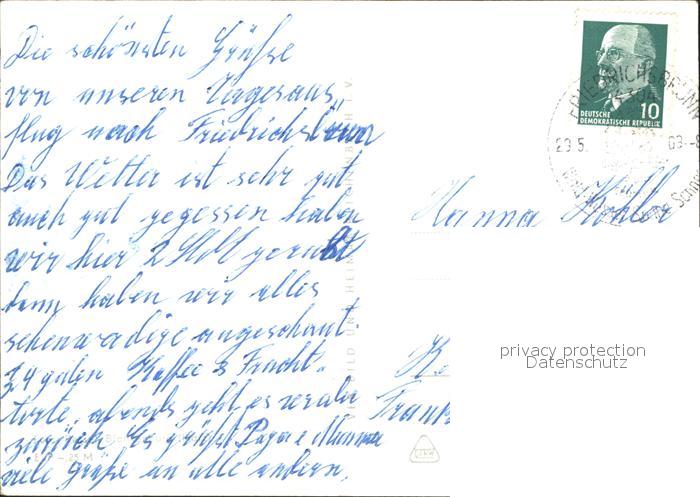 Die schönsten Grüße
von unseren Tagesaus
flug nach Friedrichsbrunn
Das Wetter ist sehr gut
auch gut gegessen haben
wir hier 2 Std gerastet
dann haben wir alles
sehenswürdige angeschaut.
Kaffee Frucht.
torte. abends geht es wieder
zurück Es grüßt Papa u Mamma
viele grüße an alle andern.
Hanna Köhler
DEUTSCHE
DEMOKRATISCHE REPUBLIK
10
FRIEDRICHSBRUNN
4304
29.5.
privacy protection
Datenschutz